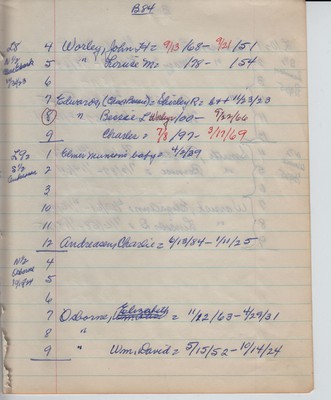 B84
L8 4 Worley, John H = 9/13/68 - 9/21/51
N 1/2 5 " Louise M = /78 - 154
6
7 Edwards, Shirley R = 6++ 11/23/23
8 " Bessie L /00 - 5/22/66
9 Charles = 7/8/97 - 3/17/69
L9 1/2 1 Elmer baby = 4/2/39
S 1/2 2
Andreasen 3
9
10
11
12 Andreasen, Charlie = 6/13/84 - 1/11/25
N 1/2 4
Osborne 5
6
7 Osborne, Elizabeth = 11/22/63 - 4/29/31
8 "
9 " Wm. David = 5/15/52 - 10/14/24